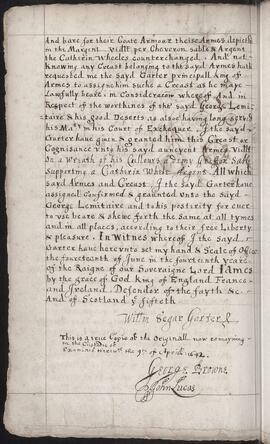 And bare for their Coate Armour theise Armes depicted
in the Margent Vidlt. per Cheveron sable & Argent
the Cathrin Wheeles counterchanged, And not
knowing any Creast belonging to the sayd Armes hath
requested me the sayd Garter principall king of
Armes to assigne him suche a Creast as he maye
Lawfully beare, in Consideracon wheof And in
Respect of the worthines of the sayd George Lemi-
taire & his good Deserts as also having long served
his Maty in his Court of Exchequer, I the sayd
Garter have given & granted him this Creast or
Cognisance unto his sayd auncyent Armes Vidlt
On a wreath of his Cullours a Demy Sable
Supporting a Cathrin Whele Argent All which
sayd Armes and Creast, I the sayd Garter have
assigned Confirmed & graunted unto the sayd
George Lemitaire and to his posterity for ever
to use beare & shewe forth the same at all tymes
and in all places, according to their free Liberty
& pleasure. In Witnes whereof I the sayd
Garter have hereunto set my hand & Seale of Office
the fourteenth of June in the fourteenth yeare
of the Raigne of our Soveraigne Lord James
by the grace of God king of England France
and Ireland, Defendor of the fayth &c
And of Scotland ye fiftieth
Willm Segar Garter &
This is a true Copie of the Originall now remayning
in the Custodie of
Examined the 9th of Aprill 1642
George Browne
John Lucas